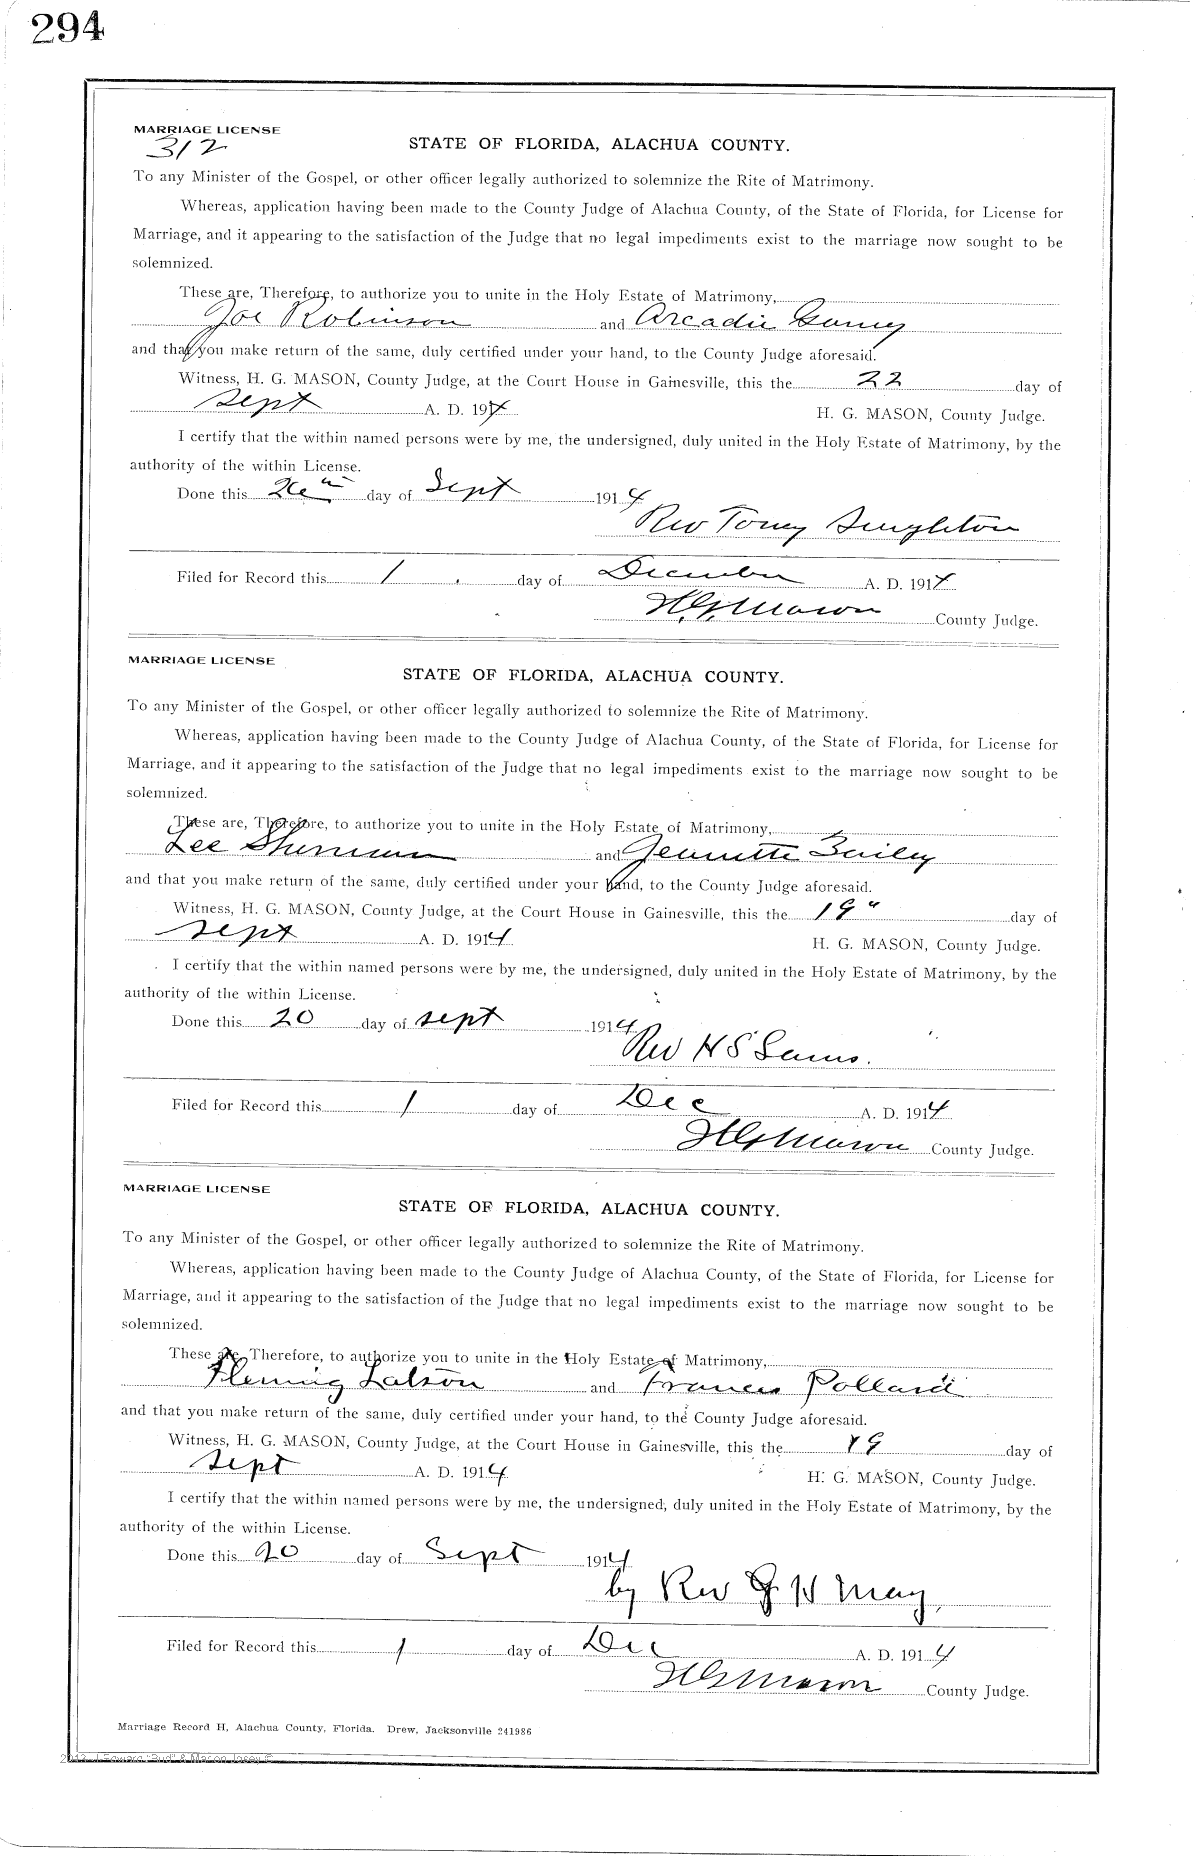 294
MARRIAGE LICENSE
312
STATE OF FLORIDA, ALACHUA COUNTY.
To any Minister of the Gospel, or other officer legally authorized to solemnize the Rite of Matrimony.
Whereas, application having been made to the County Judge of Alachua County, of the State of Florida, for License for
Marriage, and it appearing to the satisfaction of the Judge that no legal impediments exist to the marriage now sought to be
solemnized.
These are, Therefore, to authorize you to unite in the Holy Estate of Matrimony,
Joe Robinson and Arcadie
and that you make return of the same, duly certified under your hand, to the County Judge aforesaid.
Witness, H. G. MASON, County Judge, at the Court House in Gainesville, this the 22 day of
Sept A. D. 1914 H. G. MASON, County Judge.
I certify that the within named persons were by me, the undersigned, duly united in the Holy Estate of Matrimony, by the
authority of the within License.
Done this 26th day of Sept 1914
Rev Toney Singleton
Filed for Record this 1 day of December A. D. 1914
H.G. Mason County Judge.
MARRIAGE LICENSE
STATE OF FLORIDA, ALACHUA COUNTY.
To any Minister of the Gospel, or other officer legally authorized to solemnize the Rite of Matrimony.
Whereas, application having been made to the County Judge of Alachua County, of the State of Florida, for License for
Marriage, and it appearing to the satisfaction of the Judge that no legal impediments exist to the marriage now sought to be
solemnized.
These are, Therefore, to authorize you to unite in the Holy Estate of Matrimony,
Lee Sherman and Jeanette Bailey
and that you make return of the same, duly certified under your hand, to the County Judge aforesaid.
Witness, H. G. MASON, County Judge, at the Court House in Gainesville, this the 19" day of
Sept A. D. 1914 H. G. MASON, County Judge.
I certify that the within named persons were by me, the undersigned, duly united in the Holy Estate of Matrimony, by the
authority of the within License.
Done this 20 day of Sept 1914
Rev H S Sams.
Filed for Record this 1 day of Dec A. D. 1914
H G Mason County Judge.
MARRIAGE LICENSE
STATE OF FLORIDA, ALACHUA COUNTY.
To any Minister of the Gospel, or other officer legally authorized to solemnize the Rite of Matrimony.
Whereas, application having been made to the County Judge of Alachua County, of the State of Florida, for License for
Marriage, and it appearing to the satisfaction of the Judge that no legal impediments exist to the marriage now sought to be
solemnized.
These are, Therefore, to authorize you to unite in the Holy Estate of Matrimony,
Fleming Latson and Frances Pollard
and that you make return of the same, duly certified under your hand, to the County Judge aforesaid.
Witness, H. G. MASON, County Judge, at the Court House in Gainesville, this the 19 day of
Sept A. D. 1914 H. G. MASON, County Judge.
I certify that the within named persons were by me, the undersigned, duly united in the Holy Estate of Matrimony, by the
authority of the within License.
Done this 20 day of Sept 1914
by Rev J H May,
Filed for Record this 1 day of Dec A. D. 1914
H G Mason County Judge.
Marriage Record H, Alachua County, Florida. Drew, Jacksonville 241986
2013 J Edward "Bud" & Macon Josey ©